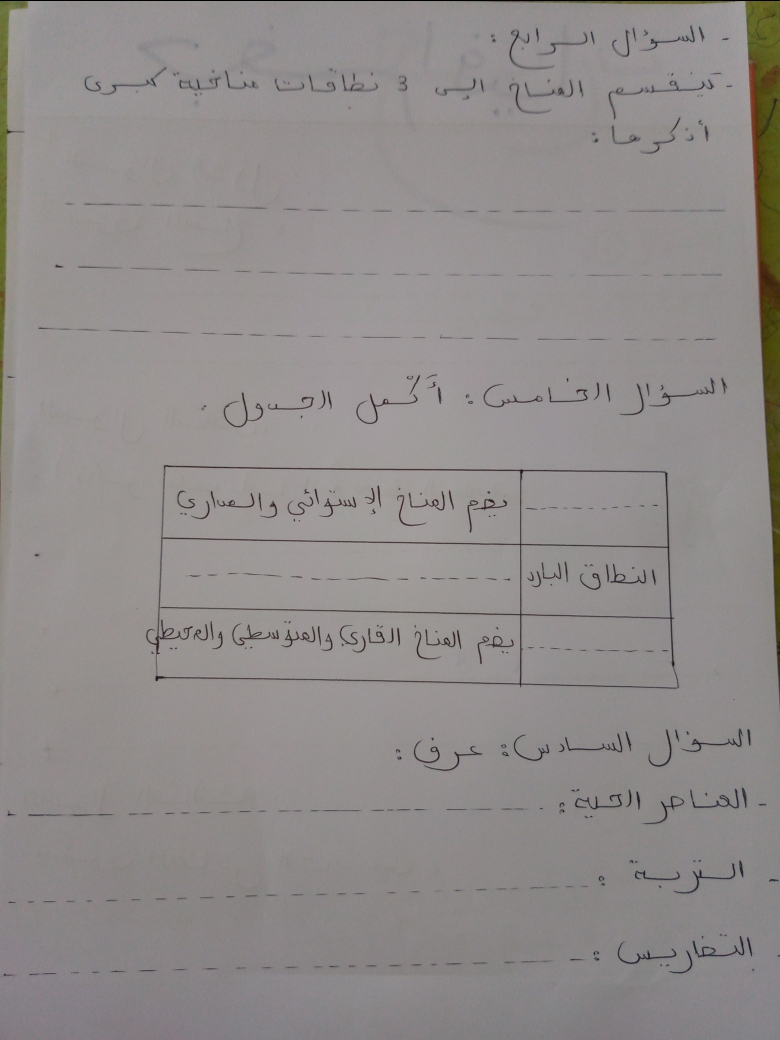 - السؤال الرابع :
- ينقسم المناخ إلى 3 نطاقات مناخية كبرى
أذكرها :
السؤال الخامس : أَكْمل الجدول .
يضم المناخ الإستوائي والمداري
النطاق البارد
يضم المناخ القاري والمتوسطي والمحيطي
السؤال السادس : عرف :
- العناصر الحية :
- التربة :
- التضاريس :